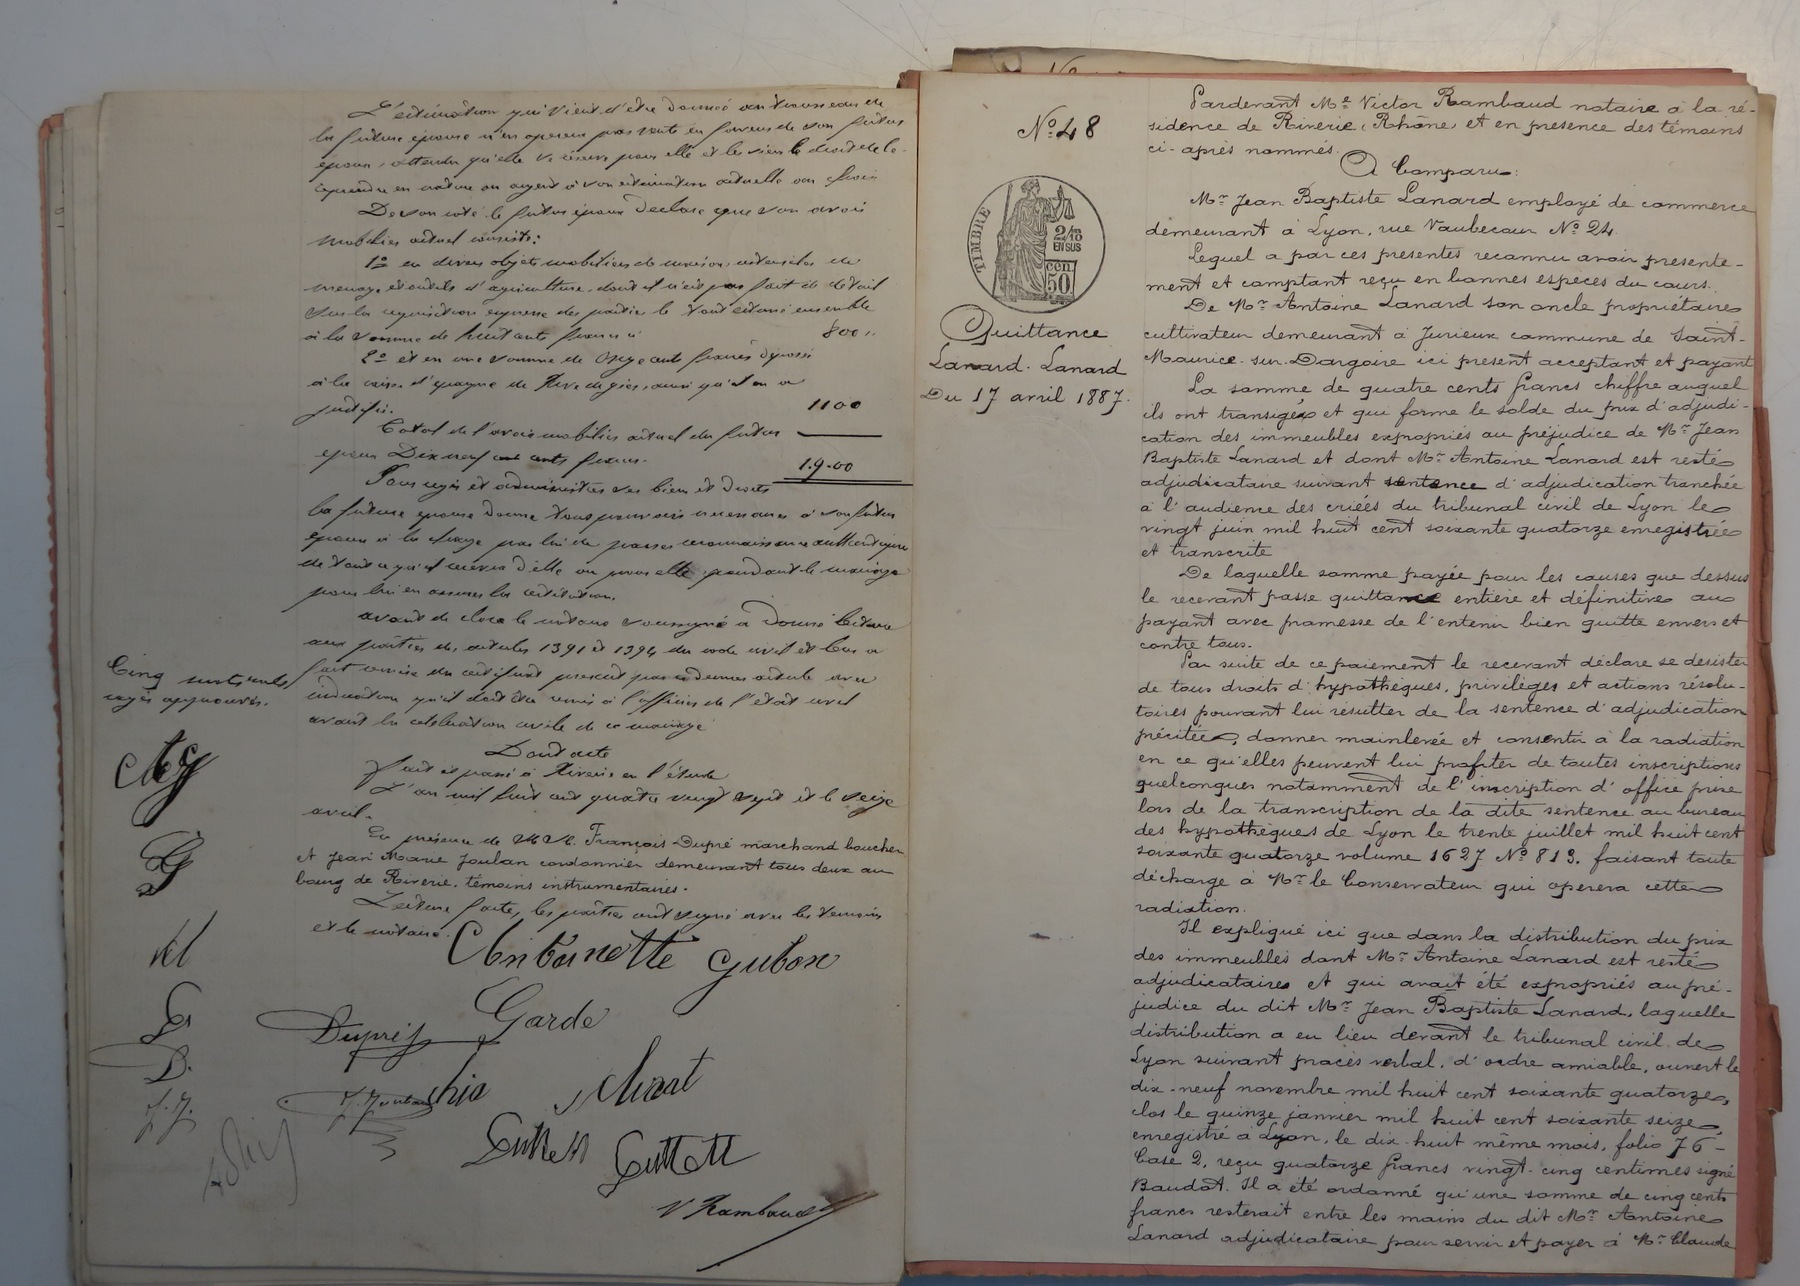 L'estimation qui vient d'être donnée au trousseau de
la future épouse n'en opérera pas vente en faveur de son futur
époux, attendu qu'elle se réserve pour elle et les siens le droit de le
reprendre en nature ou argent à son estimation actuelle au choix
De son côté le futur époux déclare que son avoir
mobilier actuel consiste:
1o en divers objets mobiliers de maison, ustensiles de
ménage et outils d'agriculture, dont il n'est pas fait de détail
sur la réquisition expresse des parties le tout estimé ensemble
à la somme de huit cents francs ci 800 "
2o et en une somme de onze cents francs déposée
à la caisse d'épargne de Rive de gier, ainsi qu'il en a
justifié. 1100
Total de l'avoir mobilier actuel du futur
époux Dix neuf cents francs. 19.00
Pour régir et administrer ses biens et droits
la future épouse donne tous pouvoirs nécessaires à son futur
époux à la charge par lui de passer reconnaissance authentique
de tout ce qu'il recevra d'elle ou pour elle pendant le mariage
pour lui en assurer la restitution.
avant de clore le notaire soussigné a donné lecture
aux parties des articles 1391 et 1394 du code civil et leur a
fait remise du certificat prescrit par ce dernier article avec
indication qu'il doit être remis à l'officier de l'état civil
avant la célébration civile de ce mariage
Cinq mots nuls
rayés approuvés.
Dont acte
Fait et passé à Riverie en l'étude
L'an mil huit cent quatre vingt sept et le seize
avril.
En présence de MM. François Dupré marchand boucher
et Jean Marie Joulan cordonnier demeurant tous deux au
bourg de Riverie, témoins instrumentaires.
Lecture faite, les parties ont signé avec les témoins
et le notaire.
Antoinette Gubon
Garde
Dupré
V Rambaud
D.
J.J.
No 48
TIMBRE
2/10
EN SUS
50 cen
Quittance
Lanard. Lanard
Du 17 avril 1887.
Pardevant Me Victor Rambaud notaire à la ré-
sidence de Riverie (Rhône) et en présence des témoins
ci-après nommés.
A Comparu:
Mr Jean Baptiste Lanard employé de commerce
demeurant à Lyon, rue Vaubecour No 24.
Lequel a par ces présentes reconnu avoir présente-
ment et comptant reçu en bonnes espèces du cours.
De Mr Antoine Lanard son oncle propriétaire
cultivateur demeurant à Jurieux commune de Saint-
Maurice-sur-Dargoire ici présent acceptant et payant
La somme de quatre cents francs chiffre auquel
ils ont transigés et qui forme le solde du prix d'adjudi-
cation des immeubles expropriés au préjudice de Mr Jean
Baptiste Lanard et dont Mr Antoine Lanard est resté
adjudicataire suivant sentence d'adjudication tranchée
à l'audience des criées du tribunal civil de Lyon le
vingt juin mil huit cent soixante quatorze enregistrée
et transcrite
De laquelle somme payée pour les causes que dessus
le recevant passe quittance entière et définitive au
payant avec promesse de l'entenir bien quitte envers et
contre tous.
Par suite de ce paiement le recevant déclare se désister
de tous droits d'hypothèques, privilèges et actions résolu-
toires pouvant lui résulter de la sentence d'adjudication
précitée, donner mainlevée et consentir à la radiation
en ce qu'elles peuvent lui profiter de toutes inscriptions
quelconques notamment de l'inscription d'office prise
lors de la transcription de la dite sentence au bureau
des hypothèques de Lyon le trente juillet mil huit cent
soixante quatorze volume 1627 No 813. faisant toute
décharge à Mr le Conservateur qui opèrera cette
radiation.
Il expliqué ici que dans la distribution du prix
des immeubles dont Mr Antoine Lanard est resté
adjudicataire et qui avait été expropriés au pré-
judice du dit Mr Jean Baptiste Lanard, laquelle
distribution a eu lieu devant le tribunal civil de
Lyon suivant procès verbal, d'ordre amiable, ouvert le
dix-neuf novembre mil huit cent soixante quatorze,
clos le quinze janvier mil huit cent soixante seize,
enregistré à Lyon, le dix-huit même mois, folio 76-
Case 2, reçu quatorze francs vingt-cinq centimes signé
Baudot. Il a été ordonné qu'une somme de cinq cents
francs resterait entre les mains du dit Mr Antoine
Lanard adjudicataire pour servir et payer à Mr Claude